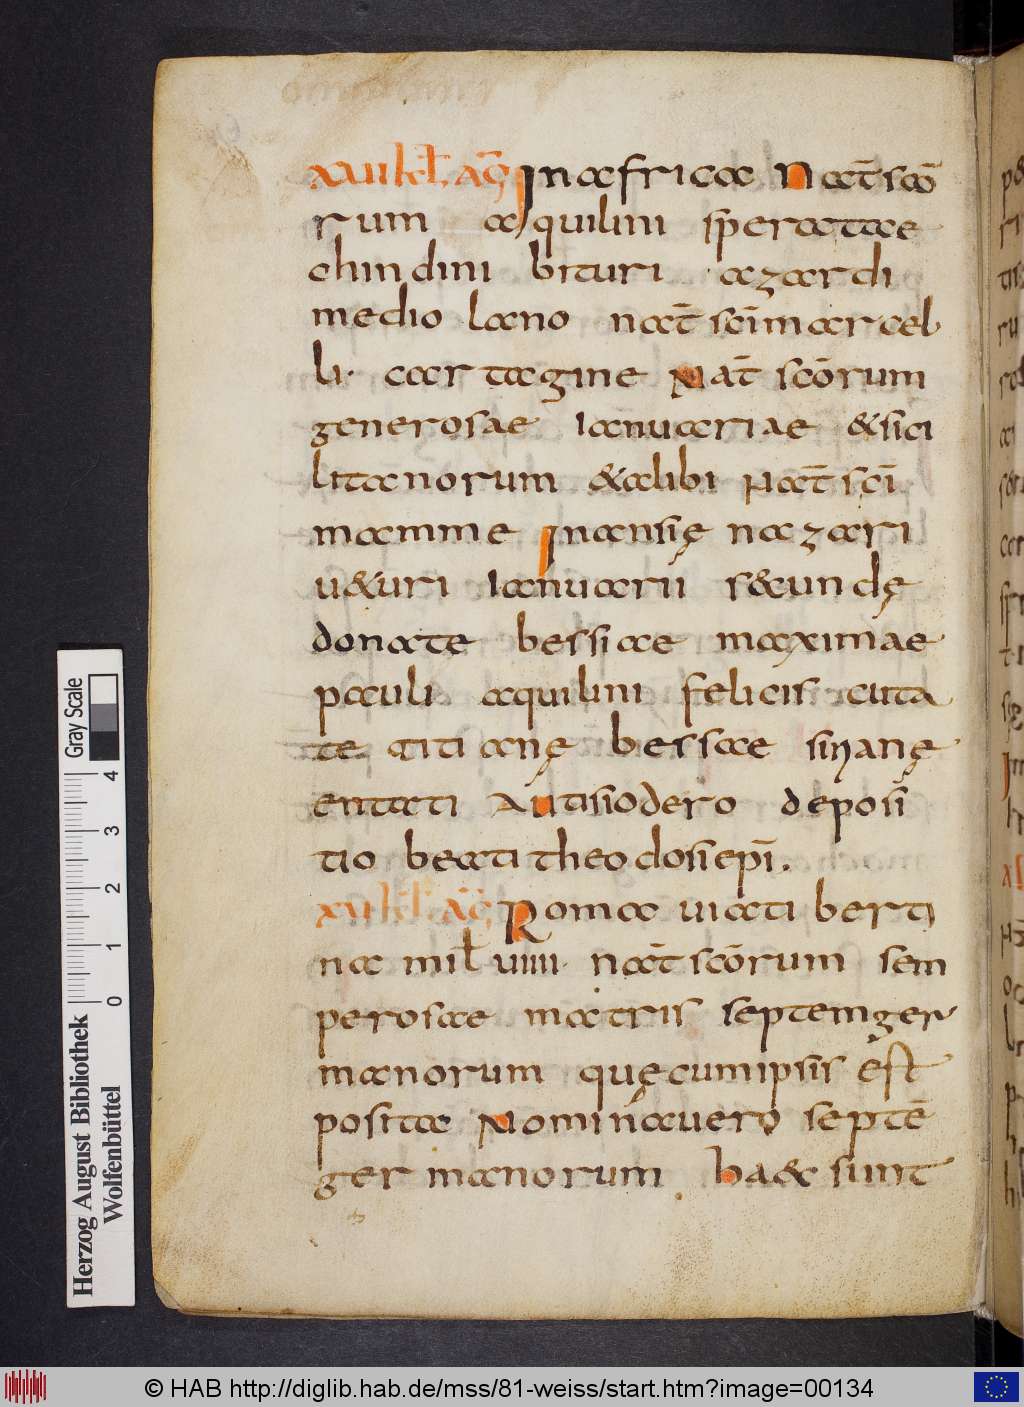 xvi kł. aḡ. In africa Nat̄ scō
rum aquilini speratae
chindini bituri azardi
mediolano nat̄ scī marcel
li. cartagine Nat̄ scōrum
generosae ianuariae & sici
litanorum & alibi Nat̄ scī
mamme In ansię nazari
u&uri ianuarii s&undę
donate bessiae maximae
pauli aquilini felicis ciuta
te titianę bessae sinanę
entati Autisiodero deposi
tio beati theodosi epī.
xvi kł. aḡ. Roma uia tiberti
na mił. uiiii. nat̄ scōrum sem
perosae matris septemger
manorum quę cum ipsis est
posita Nomina uero septē
germanorum ha&c sunt
Gray Scale
0 1 2 3 4
Herzog August Bibliothek
Wolfenbüttel
© HAB http://diglib.hab.de/mss/81-weiss/start.htm?image=00134